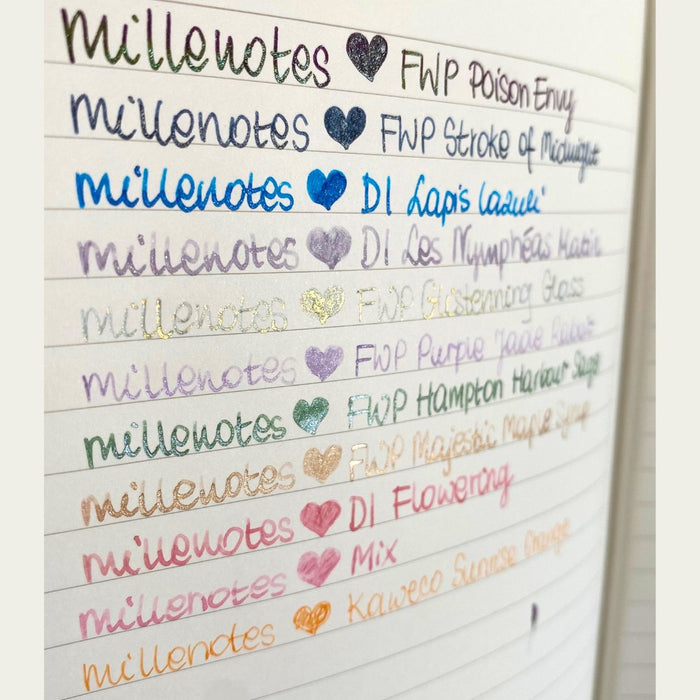 millenotes ♥ FWP Poison Envy
millenotes ♥ FWP Stroke of Midnight
millenotes ♥ DI Lapis Lazuli
millenotes ♥ DI Les Nymphéas Matin
millenotes ♥ FWP Glistenning Glass
millenotes ♥ FWP Purple Jade Rabbit
millenotes ♥ FWP Hampton Harbour Sage
millenotes ♥ FWP Majestic Maple Syrup
millenotes ♥ DI Flowering
millenotes ♥ Mix
millenotes ♥ Kaweco Sunrise Orange